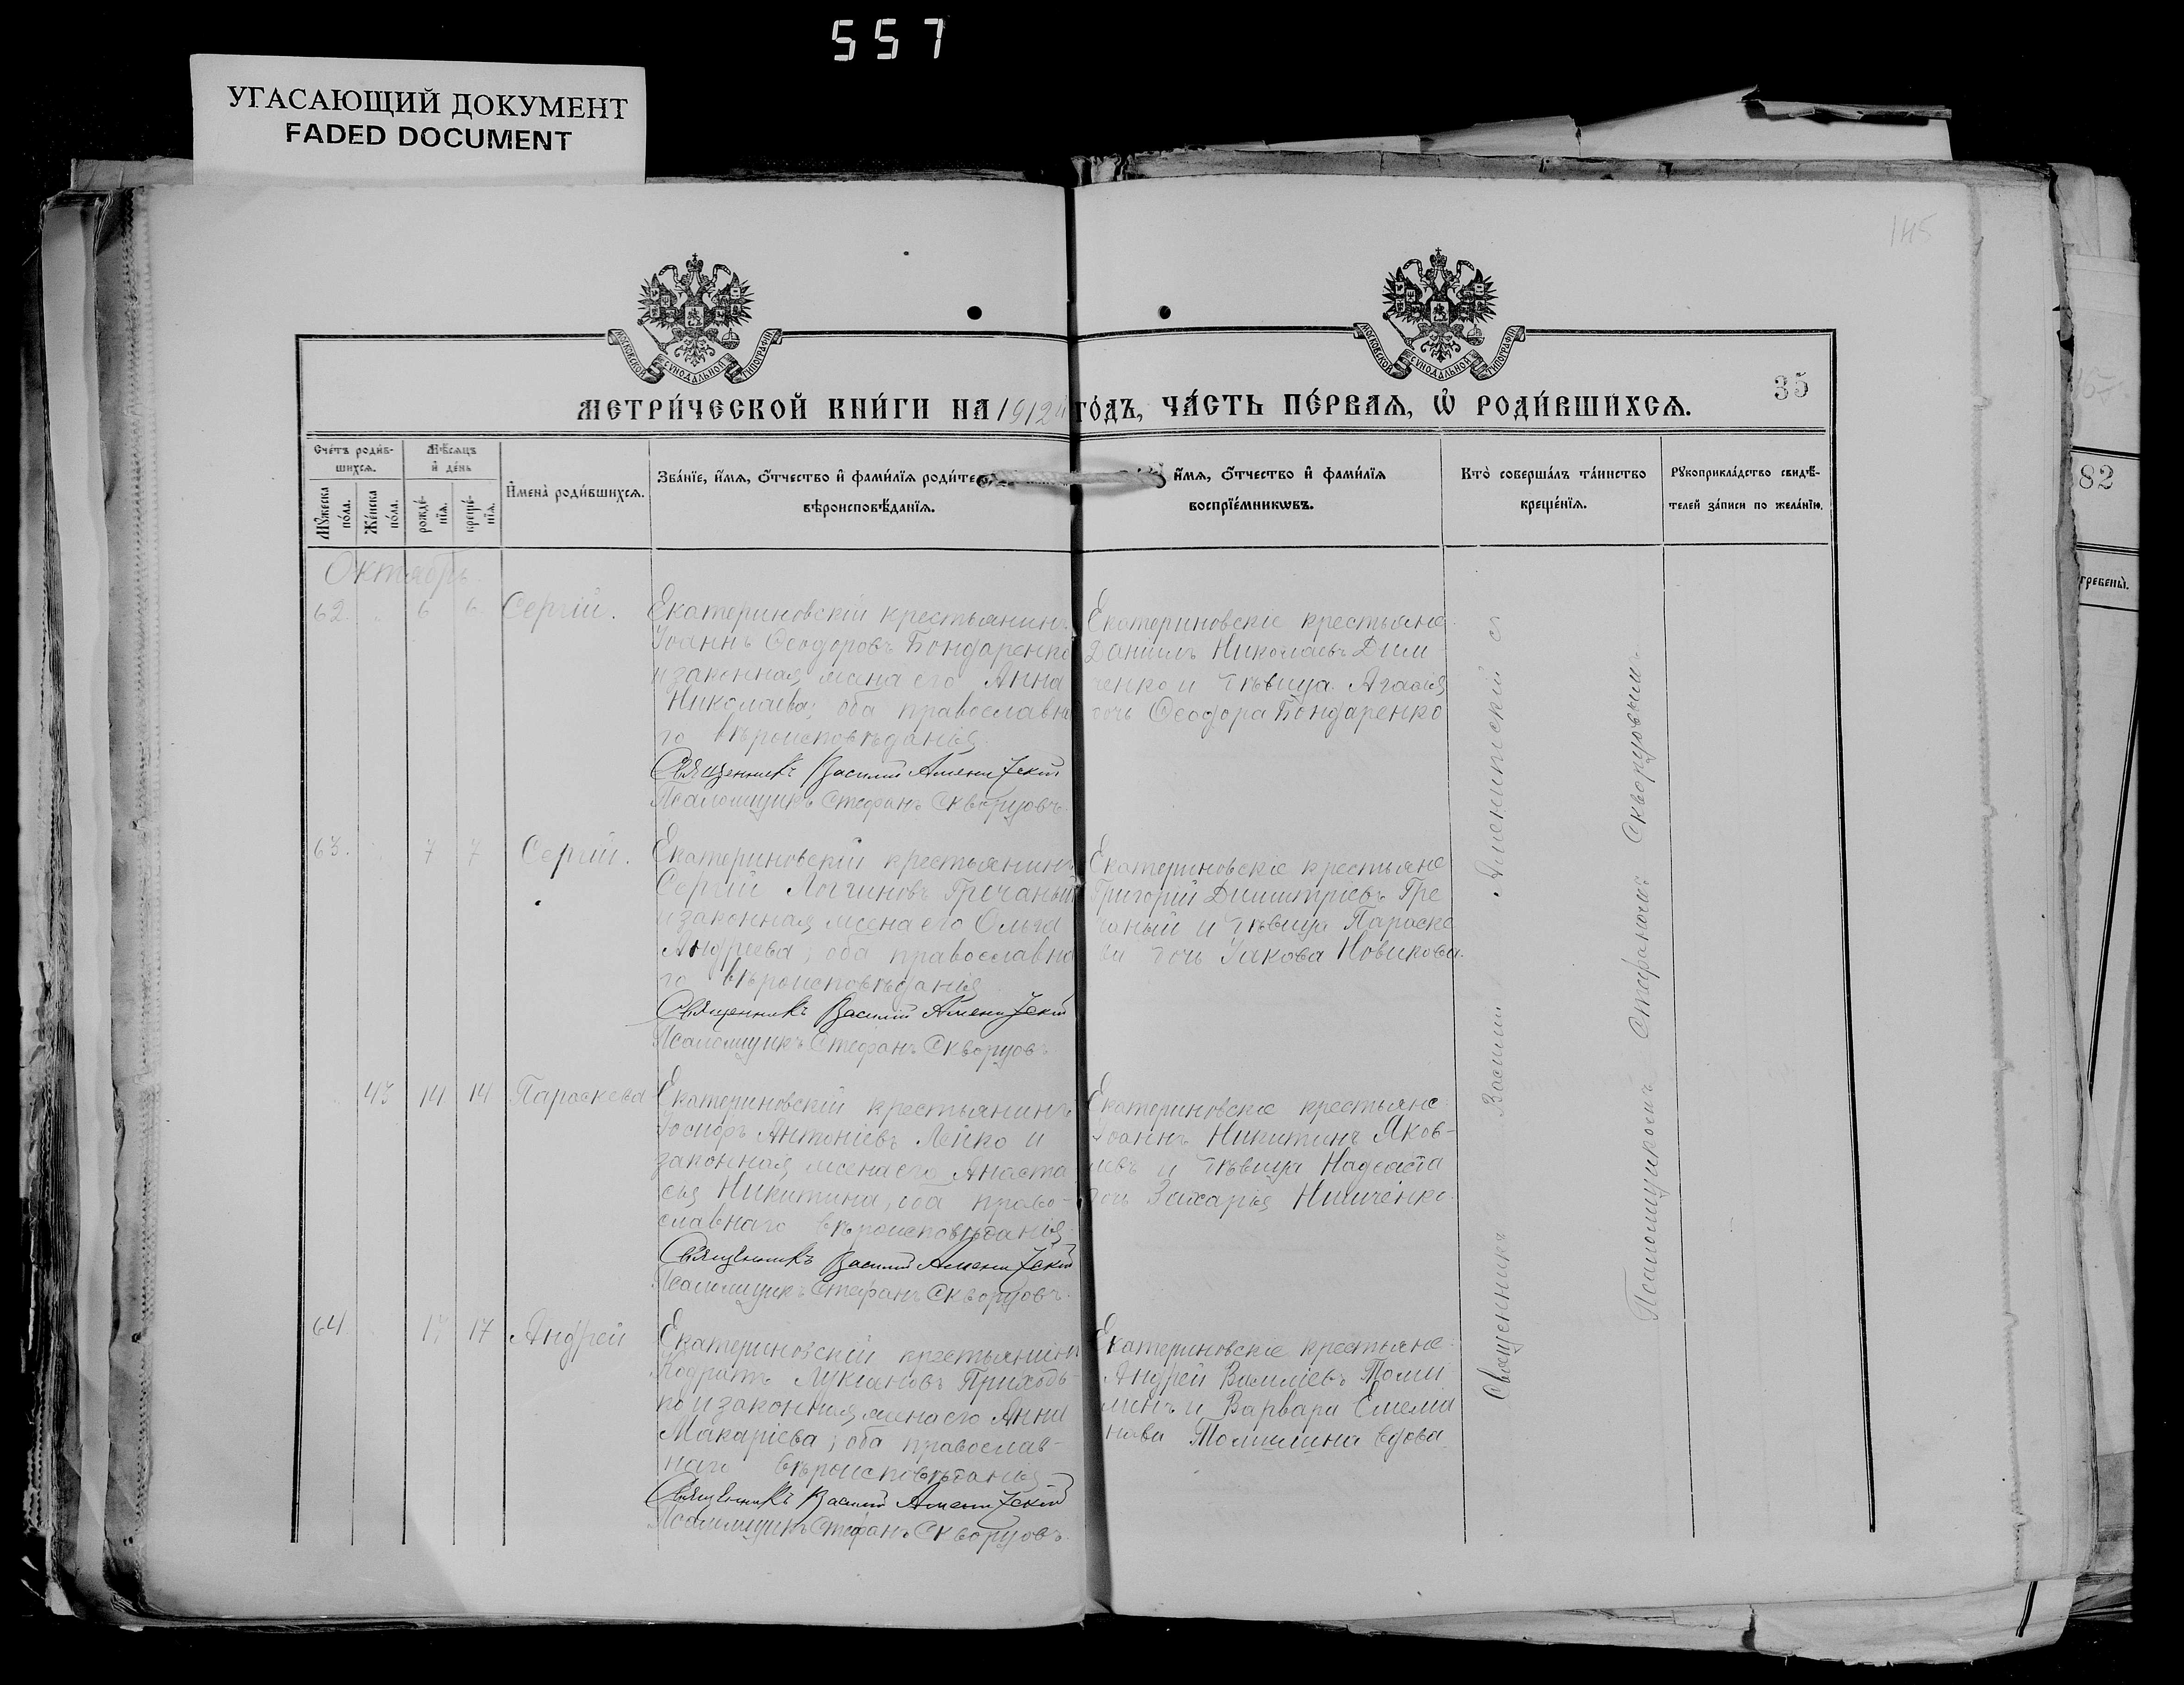 557
УГАСАЮЩИЙ ДОКУМЕНТ
FADED DOCUMENT
145
МОСКОВСКОЙ СѴНОДАЛЬНОЙ ТИПОГРАФІИ
МОСКОВСКОЙ СѴНОДАЛЬНОЙ ТИПОГРАФІИ
35
МЕТРИ́ЧЕСКОЙ КНИ́ГИ НА 1912й ГО́ДЪ, ЧА́СТЬ ПЕ́РВАЯ, Ѡ҆ РОДИ́ВШИХСЯ.
Сче́тъ роди́в-
шихся.
Мꙋжеска по́ла.
Же́нска по́ла.
Мѣ́сяцъ
и҆ де́нь
рожде́-
нїя.
креще́-
нїя.
И҆мена̀ роди́вшихся.
Зва́нїе, и҆́мя, ѻ҆́тчество и҆ фами́лїя роди́те
вѣроисповѣ́данїя.
и҆́мя, ѻ҆́тчество и҆ фами́лїя
воспрїе́мникѡвъ.
Кто̀ соверша́лъ та́инство
креще́нїя.
Рꙋкоприкла́дство свидѣ́-
телей за́писи по жела́нїю.
82
гребены̀.
Октябрь.
62. 6 6 Сергій.
Екатериновскій крестьянинъ
Іоаннъ Ѳеодоровъ Бондаренко
и законная жена его Анна
Николаева; оба православна
го вѣроисповѣданія.
Священникъ Василій
Псаломщикъ Стефанъ Скворцовъ.
Екатериновскіе крестьяне:
Даніилъ Николаевъ Дим
ченко и дѣвица Агафія
дочь Ѳеодора Бондаренко
63. 7 7 Сергій.
Екатериновскій крестьянинъ
Сергій Логгиновъ Гречаный
и законная жена его Ольга
Андреева; оба православна
го вѣроисповѣданія
Священникъ Василій
Псаломщикъ Стефанъ Скворцовъ
Екатериновскіе крестьяне
Григорій Димитріевъ Гре
чаный и дѣвица Параске
ва дочь Іакова Новикова.
43 14 14 Параскева
Екатериновскій крестьянинъ
Іосифъ Антоніевъ Лейко и
законная жена его Анаста
сія Никитина, оба право-
славнаго вѣроисповѣданія
Священникъ Василій
Псаломщикъ Стефанъ Скворцовъ.
Екатериновскіе крестьяне:
Іоаннъ Никитинъ Яков-
левъ и дѣвица Надежда
дочь Захарія
64 17 17 Андрей
Екатериновскій крестьянинъ
Кодратъ Лукіановъ Приходь-
ко и законная жена его Анна
Макаріева; оба православ-
наго вѣроисповѣданія
Священникъ Василій
Псаломщикъ Стефанъ Скворцовъ.
Екатериновскіе крестьяне:
Андрей Василіевъ Томи
линъ и Варвара Емелиа
нова Томилина вдова
Священникъ Василій съ
Псаломщикомъ Стефаномъ Скворцовымъ